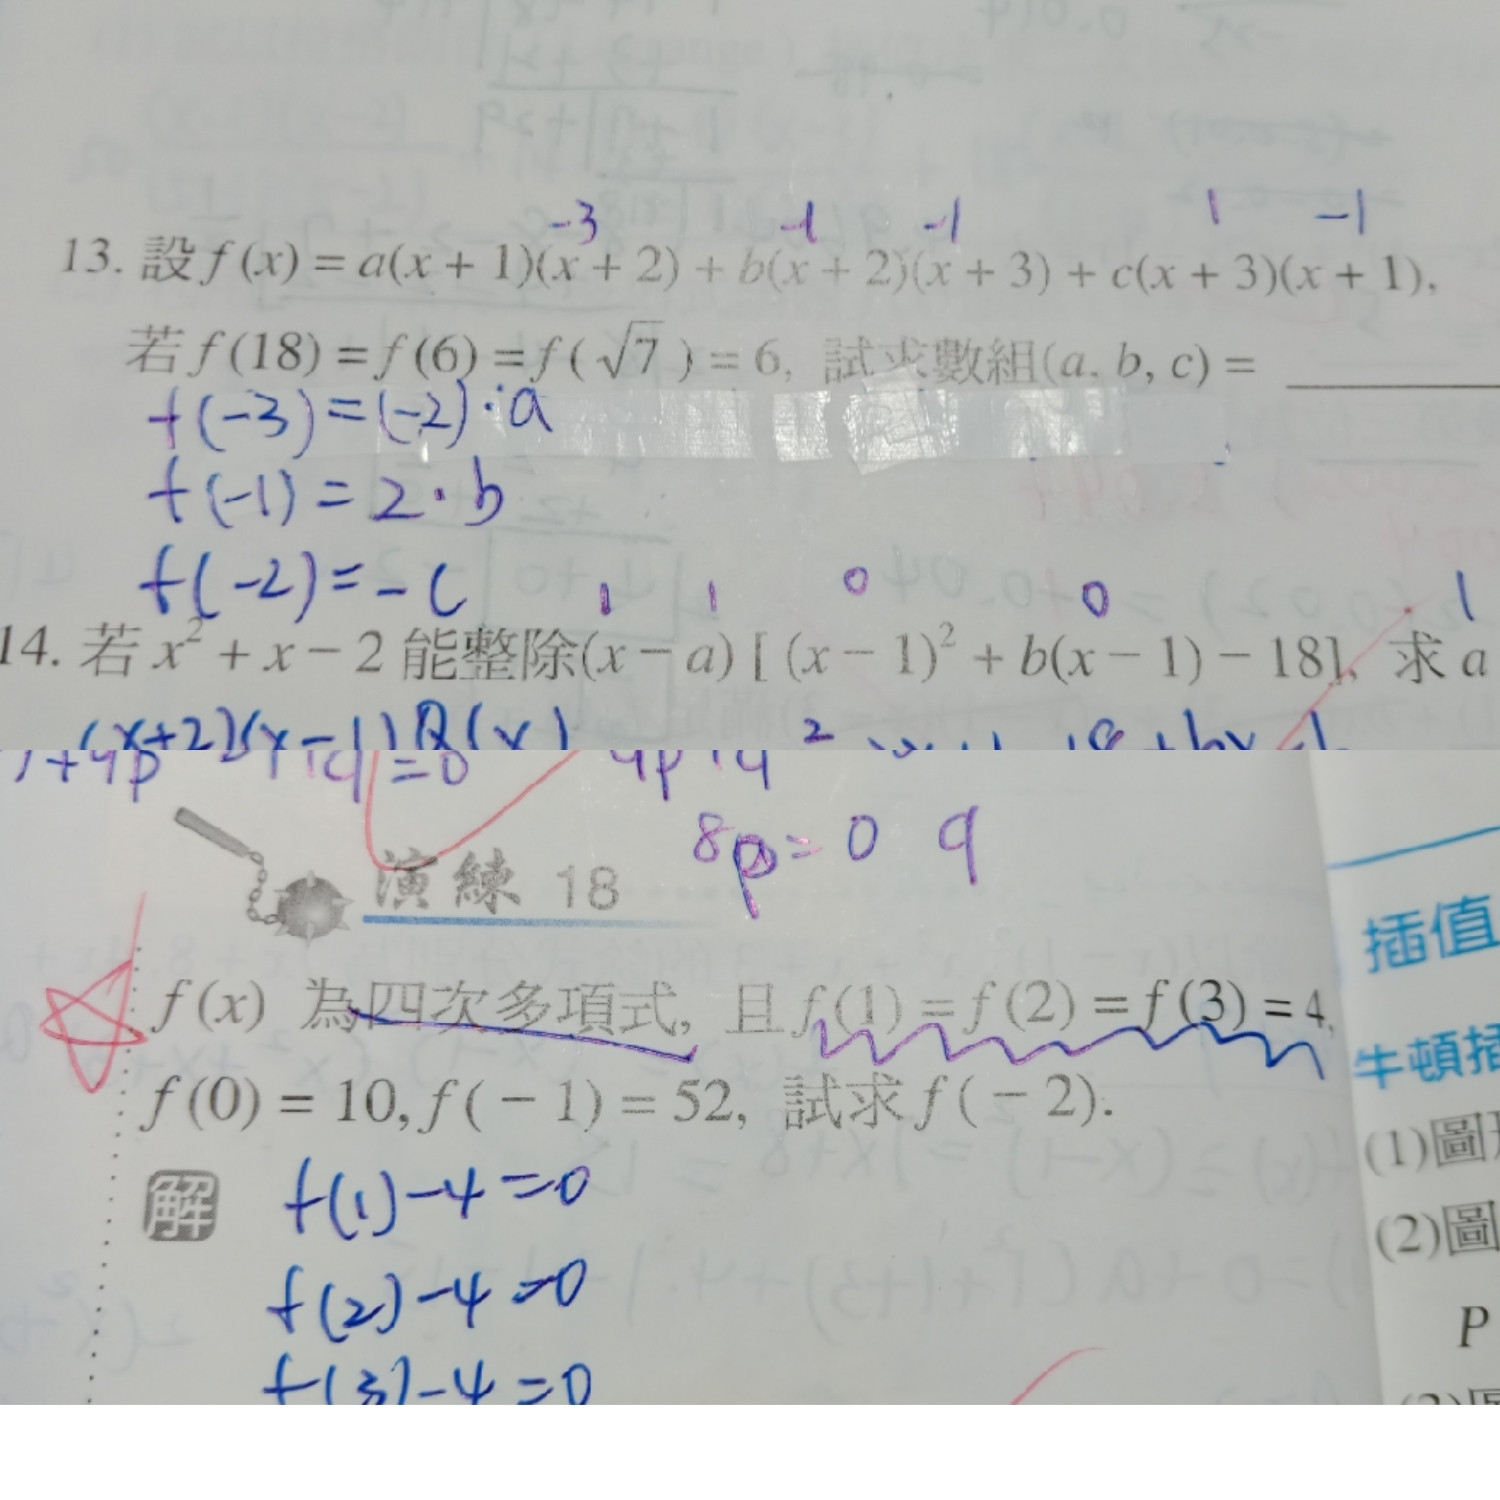 -3 -1 -1 1 -1
13. 設 f(x) = a(x + 1)(x + 2) + b(x + 2)(x + 3) + c(x + 3)(x + 1),
若 f(18) = f(6) = f(√7) = 6, 試求數組(a, b, c) =
f(-3) = (-2)·a
f(-1) = 2·b
f(-2) = -c
1 1 0 0 1
14. 若 x² + x - 2 能整除(x - a) [ (x - 1)² + b(x - 1) - 18], 求 a
(x+2)(x-1)Q(x)
8p = 0 9
演練 18
f(x) 為四次多項式, 且 f(1) = f(2) = f(3) = 4,
f(0) = 10, f(-1) = 52, 試求 f(-2).
解 f(1)-4=0
f(2)-4=0
f(3)-4=0
插值
牛頓插
(1)圖形
(2)圖
P